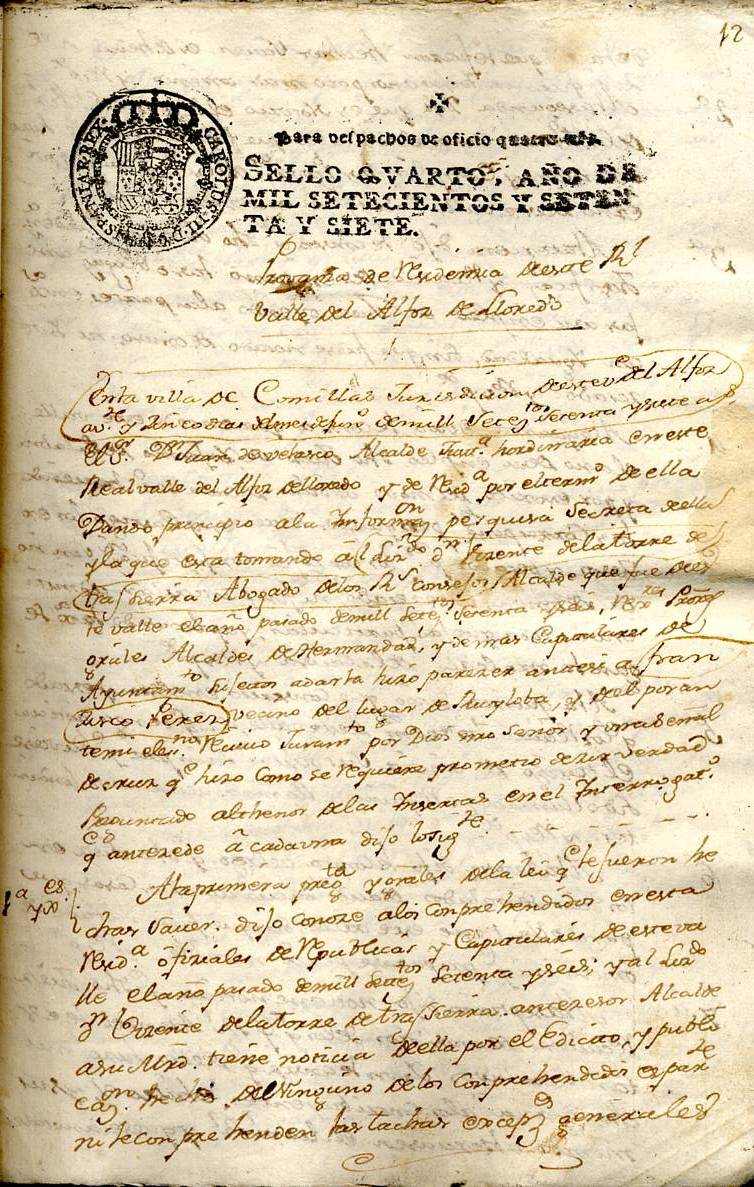 12
CAROLUS·III·D·G·HISPANIAR·REX·
Para despachos de oficio quatro mrs.
SELLO QVARTO, AÑO DE
MIL SETECIENTOS Y SETEN
TA Y SIETE.
de Residencia de este Rl
Valle del Alfoz de Lloredo
Enla villa de Comillas Jurisdicion de este Ve del Alfoz
a Vte y zinco dias del mes de Juno de mill Setetos Setenta y siete a
el Sr Dn Juan de Velasco Alcalde Juста hordinaria en este
Real valle del Alfoz de lloredo y de Resida por el termo de ella
Dando prinzipio ala Informon pesquisa secreta de ella
y la que esta tomando al Lizdo dn Vizente dela torre de
trassierra Abogado delos Rs consejos Alcalde que fue de es
te valle el año pasado de mill Setetos Setenta y seis, Rexres Procs
Grales Alcaldes de Hermandad, y demas Capitulares de
Ayuntamto su Sa para hizo parezer ante si a fran
zisco Perez vezino del lugar de Ruyloba, y de el por an
temi el esno Rezivio Juramto por Dios nro Señor y una señal
de cruz qe hizo como se requiere prometio dezir verdad
Preguntado althenor delas Insertas en el Interrogato
q antezede a cada una dijo lo sigte
1a es
yx
Ala primera pregta y grales dela lei qe le fueron he
chas saver. dijo conoze alos conprehendidos en esta
Resida ofiziales de Republicas y Capitulares de este va
lle el año pasado de mill Setetos Setenta y seis; y al Lizdo
Dn Vizente dela torre de trassierra. antezesor Alcalde
a su Mrd. tiene noticia de ella por el Edicto, y publi
cazon hecha de Ninguno delos conprehendidos es parte
ni le conprehenden las tachas excepzes generales